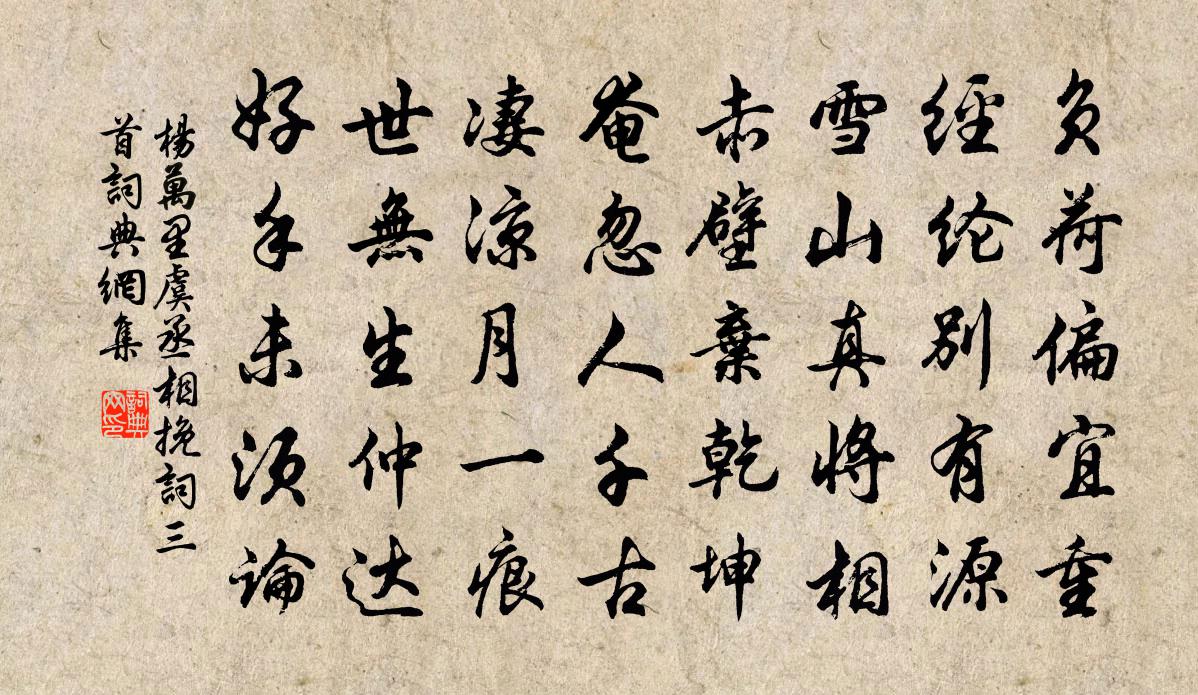 负荷偏宜重
經纶别有源
雪山真将相
赤壁棄乾坤
奄忽人千古
凄凉月一痕
世無生仲达
好手未须論
楊萬里虞丞相挽詞三
首詞典網集
詞典
网印